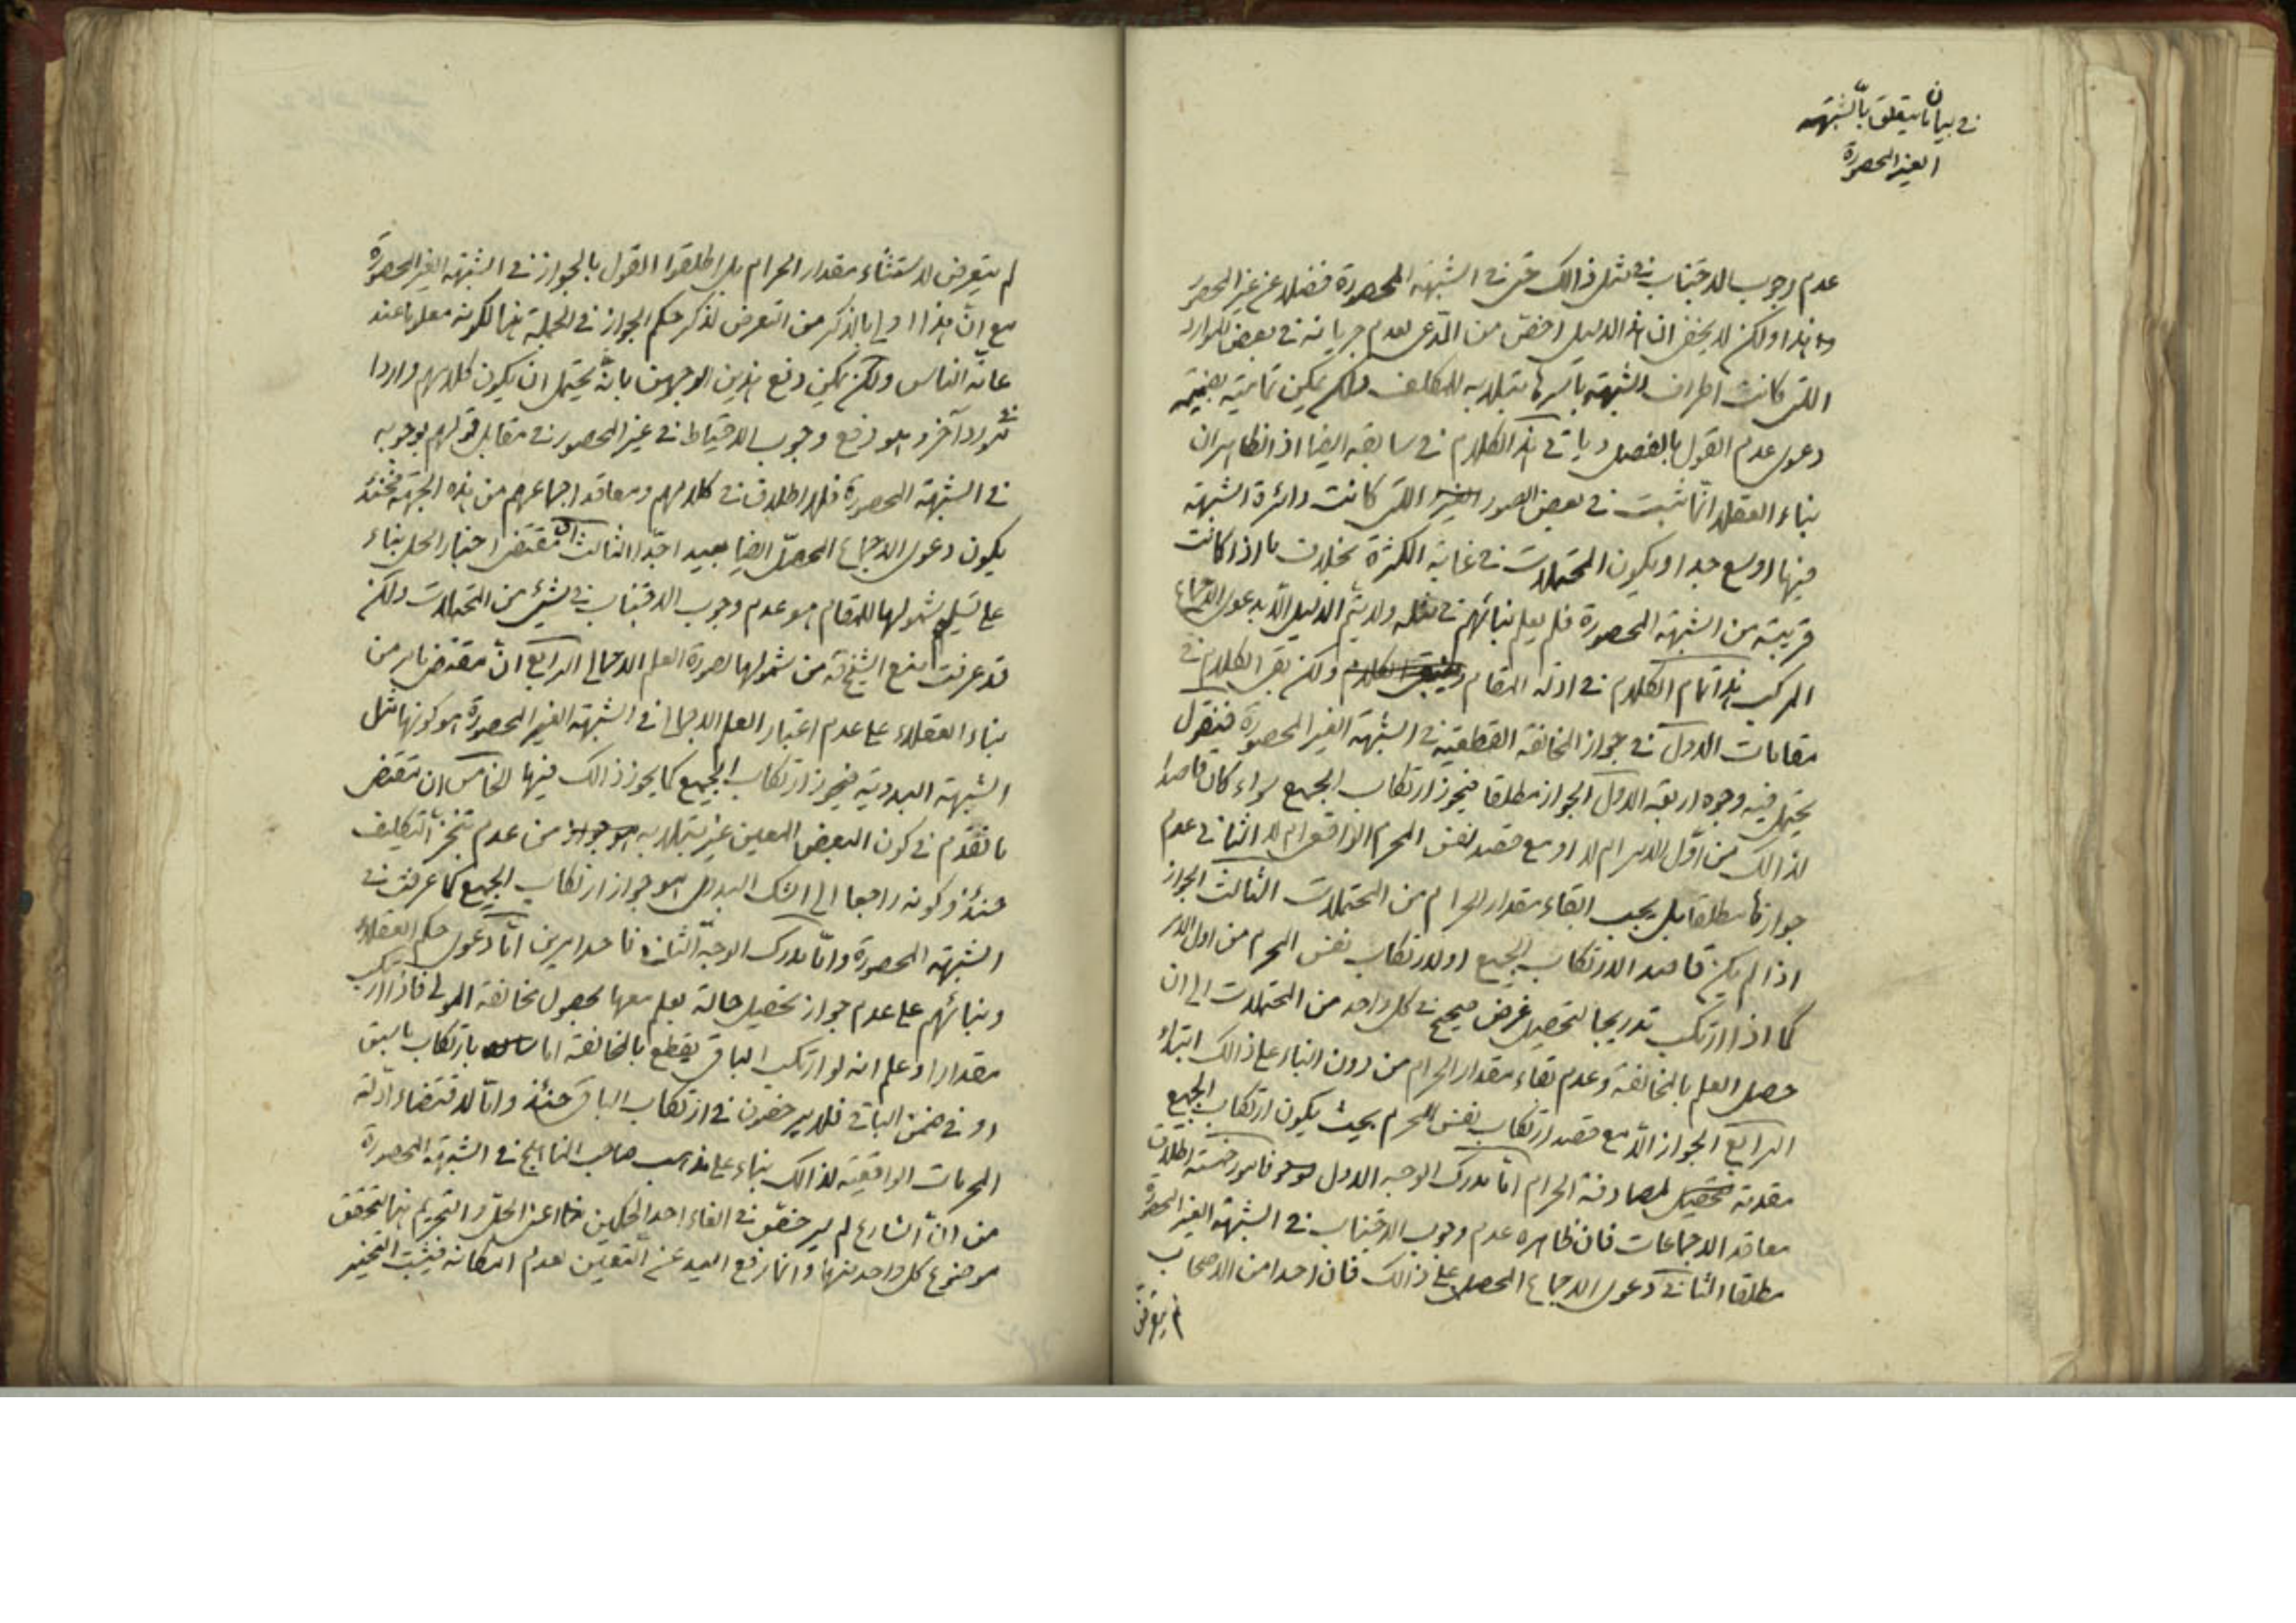 في بيان ما يتعلق بالشبهة
الغير المحصورة
عدم وجوب الاجتناب في مثل ذالك حتى في الشبهة المحصورة فضلا عن غير المحصور
هذا ولكن لا يخفى ان هذا الدليل اخص من المدعى لعدم جريانه في بعض الموارد
التي كانت اطراف الشبهة باسرها مبتلا به للمكلف ولكن يمكن تماميته بضميمة
دعوى عدم القول بالفصل وياتي هذا الكلام في سابقه ايضا اذ الظاهر ان
بناء العقلاء انما ثبت في بعض الصور التي كانت دائرة الشبهة
فيها اوسع جدا ويكون المحتملات في غاية الكثرة بخلاف ما اذا كانت
قريبة من الشبهة المحصورة فلم يعلم بنائهم في مثله ولا يتم الدليل الا بدعوى الاجماع
المركب هذا تمام الكلام في ادلة المقام ولكن بقى الكلام في
مقامات الاول في جواز المخالفة القطعية في الشبهة الغير المحصورة فنقول
يحتمل فيه وجوه اربعة الاول الجواز مطلقا فيجوز ارتكاب الجميع سواء كان قاصدا
لذالك من اول الامر ام لا او مع قصد نفس المحرم الواقعى ام لا الثاني عدم
جوازها مطلقا بل يجب ابقاء مقدار الحرام من المحتملات الثالث الجواز
اذا لم يكن قاصد الارتكاب الجميع او لارتكاب نفس المحرم من اول الامر
كما اذا ارتكب تدريجا لتحصيل غرض صحيح في كل واحد من المحتملات الى ان
حصل العلم بالمخالفة وعدم بقاء مقدار الحرام من دون البناء على ذالك ابتداء
الرابع الجواز الا مع قصد ارتكاب نفس المحرم بحيث يكون ارتكاب الجميع
مقدمة لمصادفة الحرام اما مدرك الوجه الاول فامور خمسة اطلاق
معاقد الاجماعات فان ظاهره عدم وجوب الاجتناب في الشبهة الغير المحصورة
مطلقا الثاني دعوى الاجماع المحصل على ذالك فان احدا من الاصحاب
لم يتعرض
لم يتعرض لاستثناء مقدار الحرام بل اطلقوا القول بالجواز في الشبهة الغير المحصورة
مع ان هذا اولى بالذكر من التعرض لذكر حكم الجواز في الجملة هنا لكونه معلوما عند
عامة الناس ولكن يمكن دفع هذين الوجهين بانه يحتمل ان يكون كلامهم واردا
في مورد آخر وهو رفع وجوب الاحتياط في غير المحصور في مقابل قولهم بوجوبه
في الشبهة المحصورة فلا اطلاق في كلامهم ومعاقد اجماعهم من هذه الجهة فحينئذ
يكون دعوى الاجماع المحصل ايضا بعيد اجدا الثالث ان مقتضى اخبار الحل بناء
على تسليم شمولها للمقام هو عدم وجوب الاجتناب في شيء من المحتملات ولكن
قد عرفت منع الشيخ ره من شمولها لصورة العلم الاجمالى الرابع ان مقتضى ما مر من
بناء العقلاء على عدم اعتبار العلم الاجمالى في الشبهة الغير المحصورة هو كونها مثل
الشبهة البدوية فيجوز ارتكاب الجميع كما يجوز ذالك فيها الخامس ان مقتضى
ما تقدم في كون البعض المعين غير مبتلا به من عدم تنجز التكليف
حينئذ وكونه راجعا الى الشك البدوى هو جواز ارتكاب الجميع كما عرفت في
الشبهة المحصورة واما مدرك الوجه الثاني فاحد امرين اما دعوى حكم العقلاء
وبنائهم على عدم جواز تحصيل حالة يعلم معها بحصول مخالفة المولى فاذا ارتكب
مقدارا وعلم انه لو ارتكب الباقى يقطع بالمخالفة اما بارتكاب ما سبق
او في ضمن الباقى فلا يرخصون في ارتكاب الباقى حينئذ واما لاقتضاء ادلة
المحرمات الواقعية لذالك بناء على مذهب صاحب المناهج في الشبهة المحصورة
من ان الشارع لم يرخص في القاء احد الحكمين اعنى الحل والتحريم هنا لتحقق
موضوع كل واحد منهما وانما رفع اليد عن التعيين لعدم امكانه فيثبت التخيير